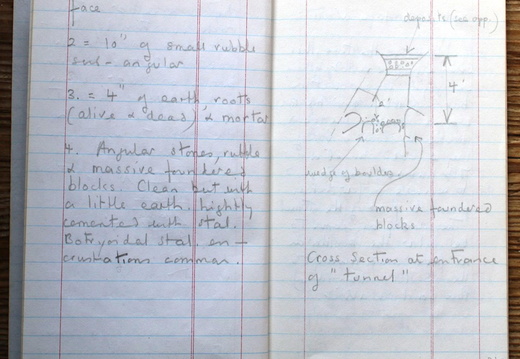 face
2 = 10" of small rubble
sub-angular
3. = 4" of earth, roots
(alive & dead) & mortar
4. Angular stones, rubble
& massive foundered
blocks. Clean but with
a little earth. Lightly
cemented with stal.
Botryoidal stal en-
crustations common.
deposits (see opp.)
4'
wedge of boulders
massive foundered
blocks
Cross Section at entrance
of "tunnel"